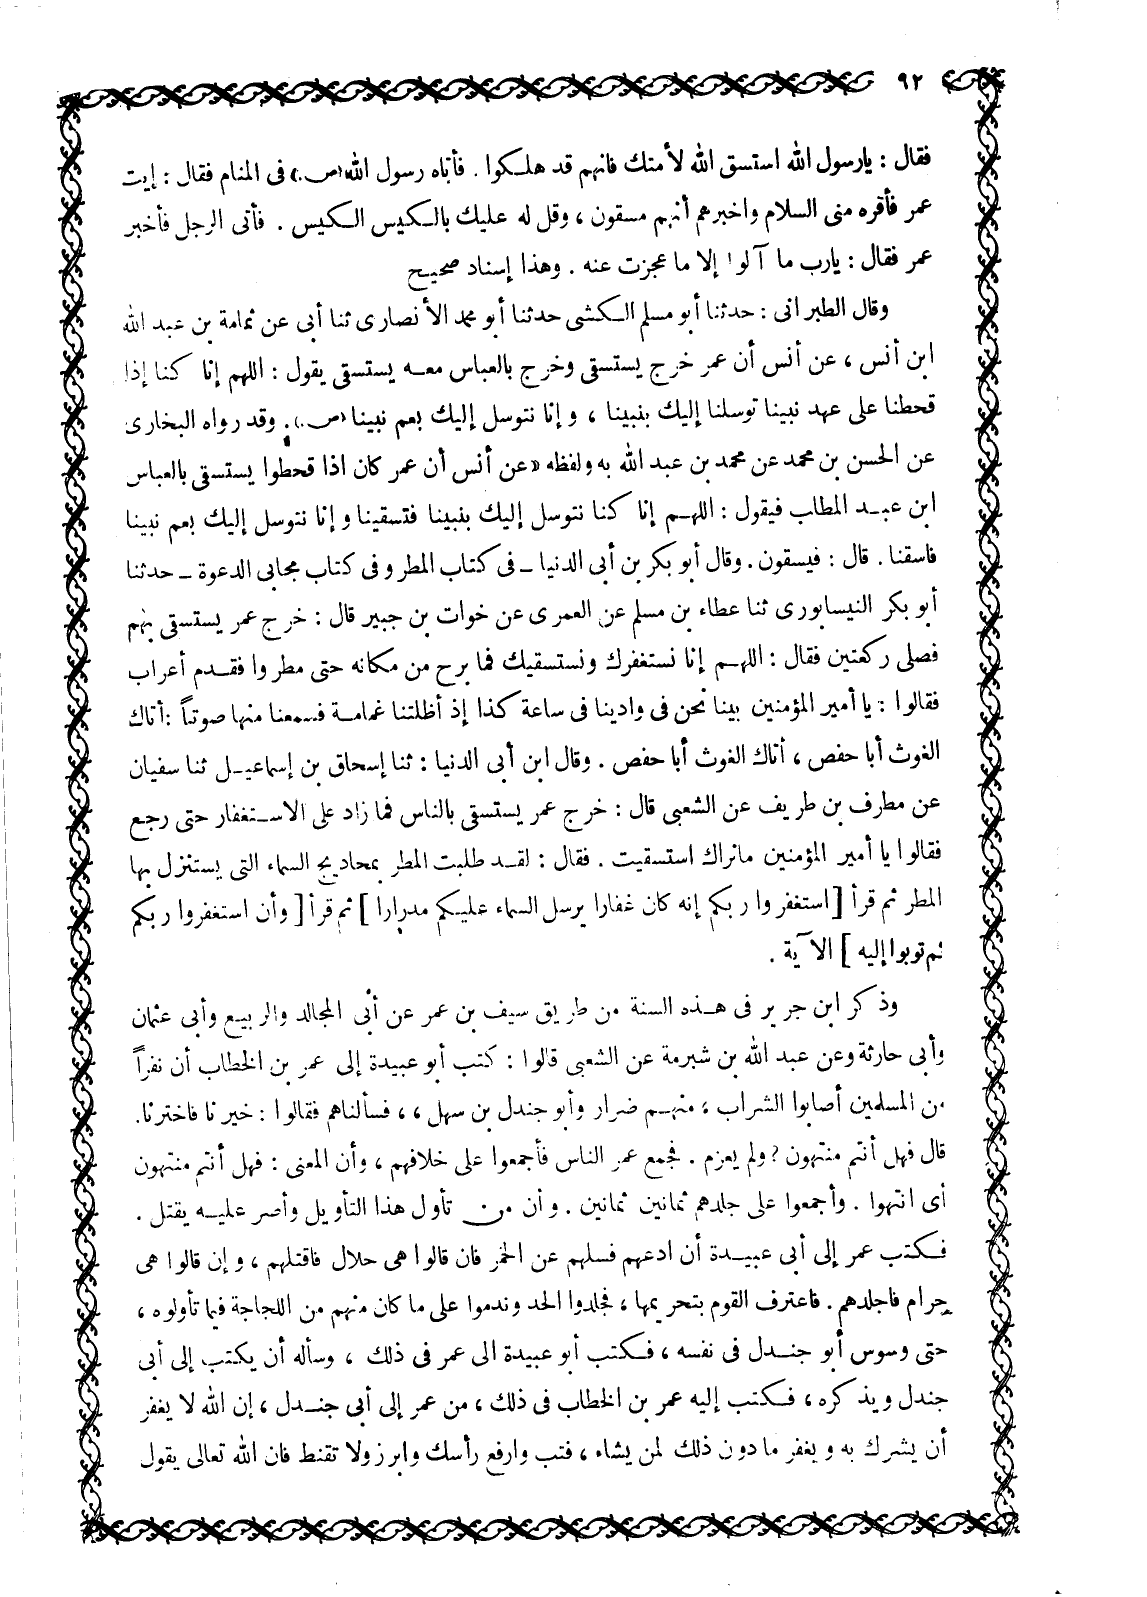 ٩٢
فقال : يارسول الله استسق الله لأمتك فانهم قد هلكوا . فأتاه رسول الله (ص.) فى المنام فقال : إيت
عمر فأقره منى السلام واخبرهم أنهم مسقون ، وقل له عليك بالكيس الكيس . فأتى الرجل فأخبر
عمر فقال : يارب ما آلوا إلا ما عجزت عنه . وهذا إسناد صحيح
وقال الطبرانى : حدثنا أبو مسلم الكشى حدثنا أبو محمد الأنصارى ثنا أبى عن ثمامة بن عبد الله
ابن أنس ، عن أنس أن عمر خرج يستسقى وخرج بالعباس معه يستسقى يقول : اللهم إنا كنا إذا
قحطنا على عهد نبينا توسلنا إليك بنبينا ، و إنا نتوسل إليك بعم نبينا (ص.) . وقد رواه البخارى
عن الحسن بن محمد عن محمد بن عبد الله به ولفظه « عن أنس أن عمر كان اذا قحطوا يستسقى بالعباس
ابن عبد المطلب فيقول : اللهم إنا كنا نتوسل إليك بنبينا فتسقينا و إنا نتوسل إليك بعم نبينا
فاسقنا . قال : فيسقون . وقال أبو بكر بن أبى الدنيا ــ فى كتاب المطر وفى كتاب مجابى الدعوة ــ حدثنا
أبو بكر النيسابورى ثنا عطاء بن مسلم عن العمرى عن خوات بن جبير قال : خرج عمر يستسقى بهم
فصلى ركعتين فقال : اللهم إنا نستغفرك ونستسقيك فما برح من مكانه حتى مطروا فقدم أعراب
فقالوا : يا أمير المؤمنين بينا نحن فى وادينا فى ساعة كذا إذ أظلتنا غمامة فسمعنا منها صوتاً : أتاك
الغوث أبا حفص ، أتاك الغوث أبا حفص . وقال ابن أبى الدنيا : ثنا إسحاق بن إسماعيل ثنا سفيان
عن مطرف بن طريف عن الشعبى قال : خرج عمر يستسقى بالناس فما زاد على الاستغفار حتى رجع
فقالوا يا أمير المؤمنين مانراك استسقيت . فقال : لقد طلبت المطر بمحاديج السماء التى يستنزل بها
المطر ثم قرأ [ استغفروا ربكم إنه كان غفارا يرسل السماء عليكم مدرارا ] ثم قرأ [ وأن استغفروا ربكم
ثم توبوا إليه ] الآية .
وذكر ابن جرير فى هذه السنة من طريق سيف بن عمر عن أبى المجالد والربيع وأبى عثمان
وأبى حارثة وعن عبد الله بن شبرمة عن الشعبى قالوا : كتب أبو عبيدة إلى عمر بن الخطاب أن نفراً
من المسلمين أصابوا الشراب ، منهم ضرار وأبو جندل بن سهل ، ، فسألناهم فقالوا : خيرنا فاخترنا.
قال فهل أنتم منتهون ? ولم يعزم . فجمع عمر الناس فأجمعوا على خلافهم ، وأن المعنى : فهل أنتم منتهون
أى انتهوا . وأجمعوا على جلدهم ثمانين ثمانين . وأن من تأول هذا التأويل وأصر عليه يقتل .
فكتب عمر إلى أبى عبيدة أن ادعهم فسلهم عن الخمر فان قالوا هى حلال فاقتلهم ، و إن قالوا هى
حرام فاجلدهم . فاعترف القوم بتحريمها ، فجلدوا الحد وندموا على ما كان منهم من اللجاجة فيما تأولوه ،
حتى وسوس أبو جندل فى نفسه ، فكتب أبو عبيدة الى عمر فى ذلك ، وسأله أن يكتب إلى أبى
جندل ويذكره ، فكتب إليه عمر بن الخطاب فى ذلك ، من عمر إلى أبى جندل ، إن الله لا يغفر
أن يشرك به و يغفر ما دون ذلك لمن يشاء ، فتب وارفع رأسك وابرز ولا تقنط فان الله تعالى يقول